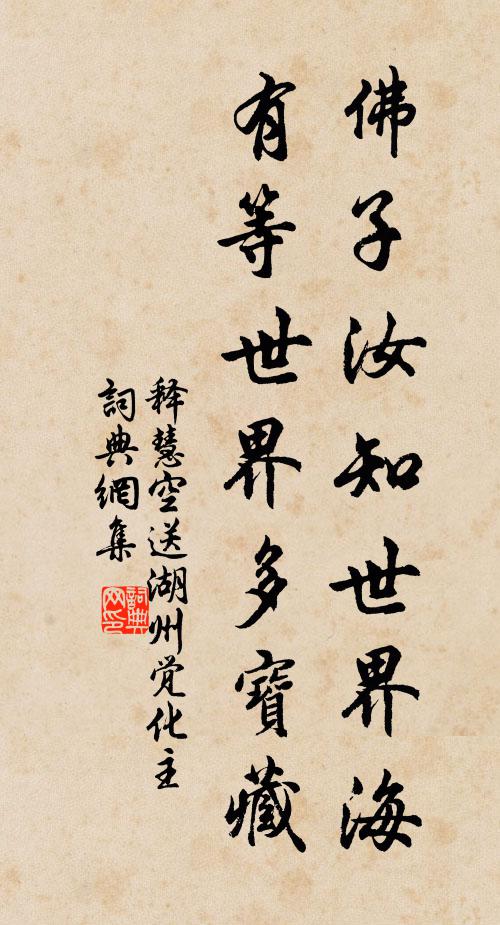 佛子汝知世界海
有等世界多寶藏
释慧空送湖州觉化主
詞典網集
詞典网印